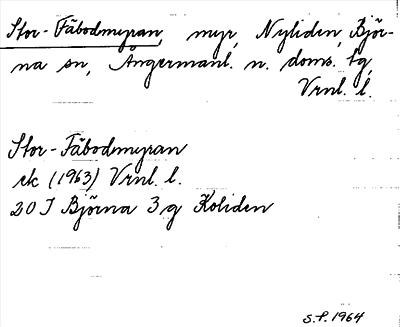 Stor-Fäbodmyran, myr, Nyliden, Björ-
na sn, Ångermanl. n. doms. tg,
Vrnl. l.
Stor-Fäbodmyran
ek (1963) Vrnl. l.
20 J Björna 3 g Koliden
S.P. 1964